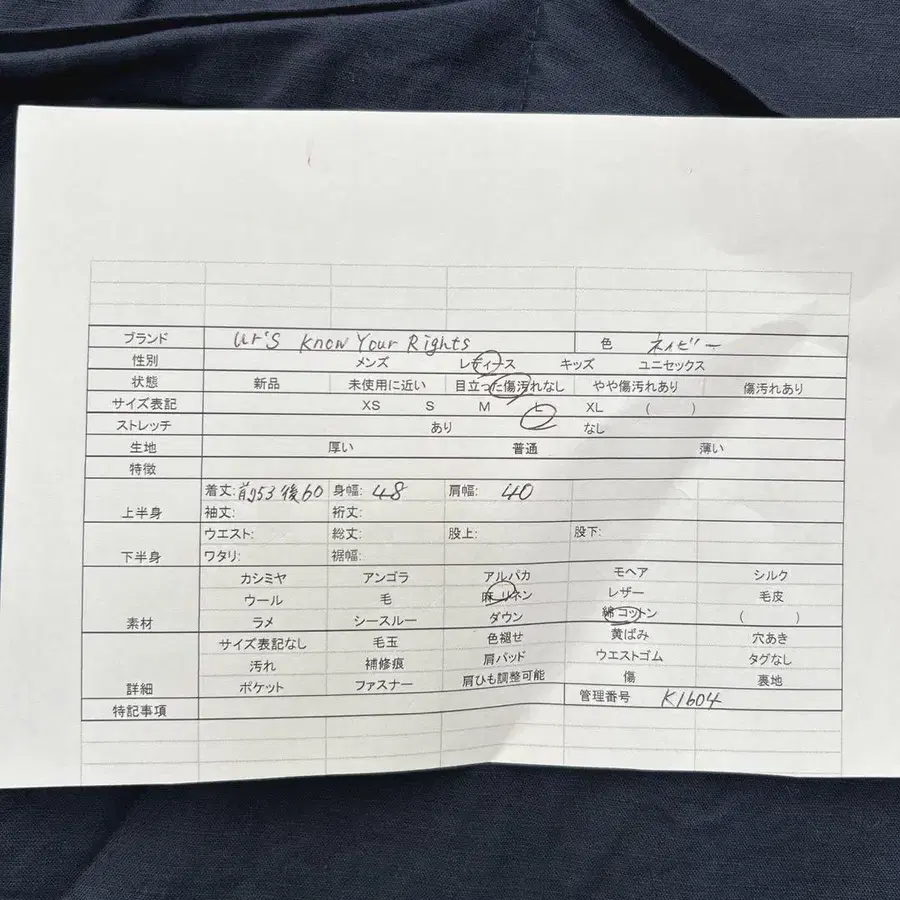 ブランド ur's know Your Rights 色 ネイビー
性別 メンズ レディース キッズ ユニセックス
状態 新品 未使用に近い 目立った傷汚れなし やや傷汚れあり 傷汚れあり
サイズ表記 XS S M L XL ( )
ストレッチ あり なし
生地 厚い 普通 薄い
特徴
上半身 着丈:前53後60 身幅:48 肩幅: 40
袖丈: 裄丈:
下半身 ウエスト: 総丈: 股上: 股下:
ワタリ: 裾幅:
カシミヤ アンゴラ アルパカ モヘア シルク
ウール 毛 麻 リネン レザー 毛皮
素材 ラメ シースルー ダウン 綿 コットン ( )
サイズ表記なし 毛玉 色褪せ 黄ばみ 穴あき
汚れ 補修痕 肩パッド ウエストゴム タグなし
詳細 ポケット ファスナー 肩ひも調整可能 傷 裏地
特記事項 管理番号 K1604